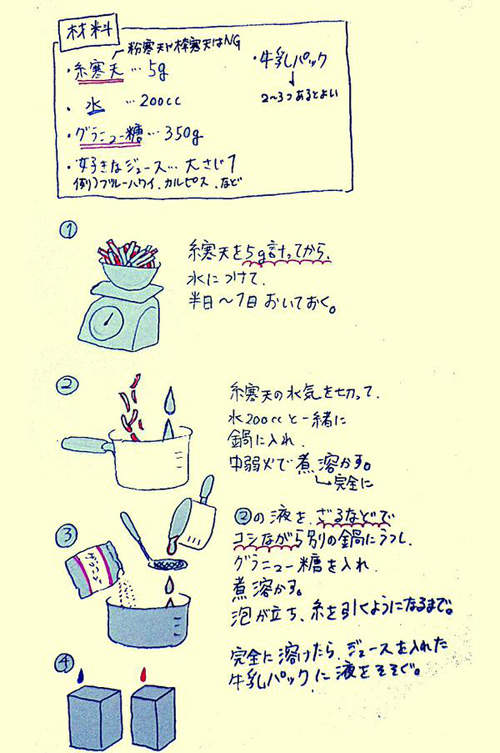 材料
粉寒天や棒寒天はNG
・糸寒天…5g
・水…200cc
・グラニュー糖…350g
・好きなジュース…大さじ1
(例)ブルーハワイ、カルピス、など
・牛乳パック
↓
2〜3つあるとよい
①
糸寒天を5g計ってから、
水につけて、
半日〜1日おいておく。
②
糸寒天の水気を切って、
水200ccと一緒に
鍋に入れ、
中弱火で煮溶かす。
→完全に
③
②の液を、ざるなどで
コシながら別の鍋にうつし、
グラニュー糖を入れ、
煮溶かす。
泡が立ち、糸を引くようになるまで。
④
完全に溶けたら、ジュースを入れた
牛乳パックに液をそそぐ。